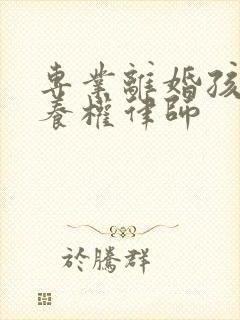 專業離婚孩
養權律師
於騰群